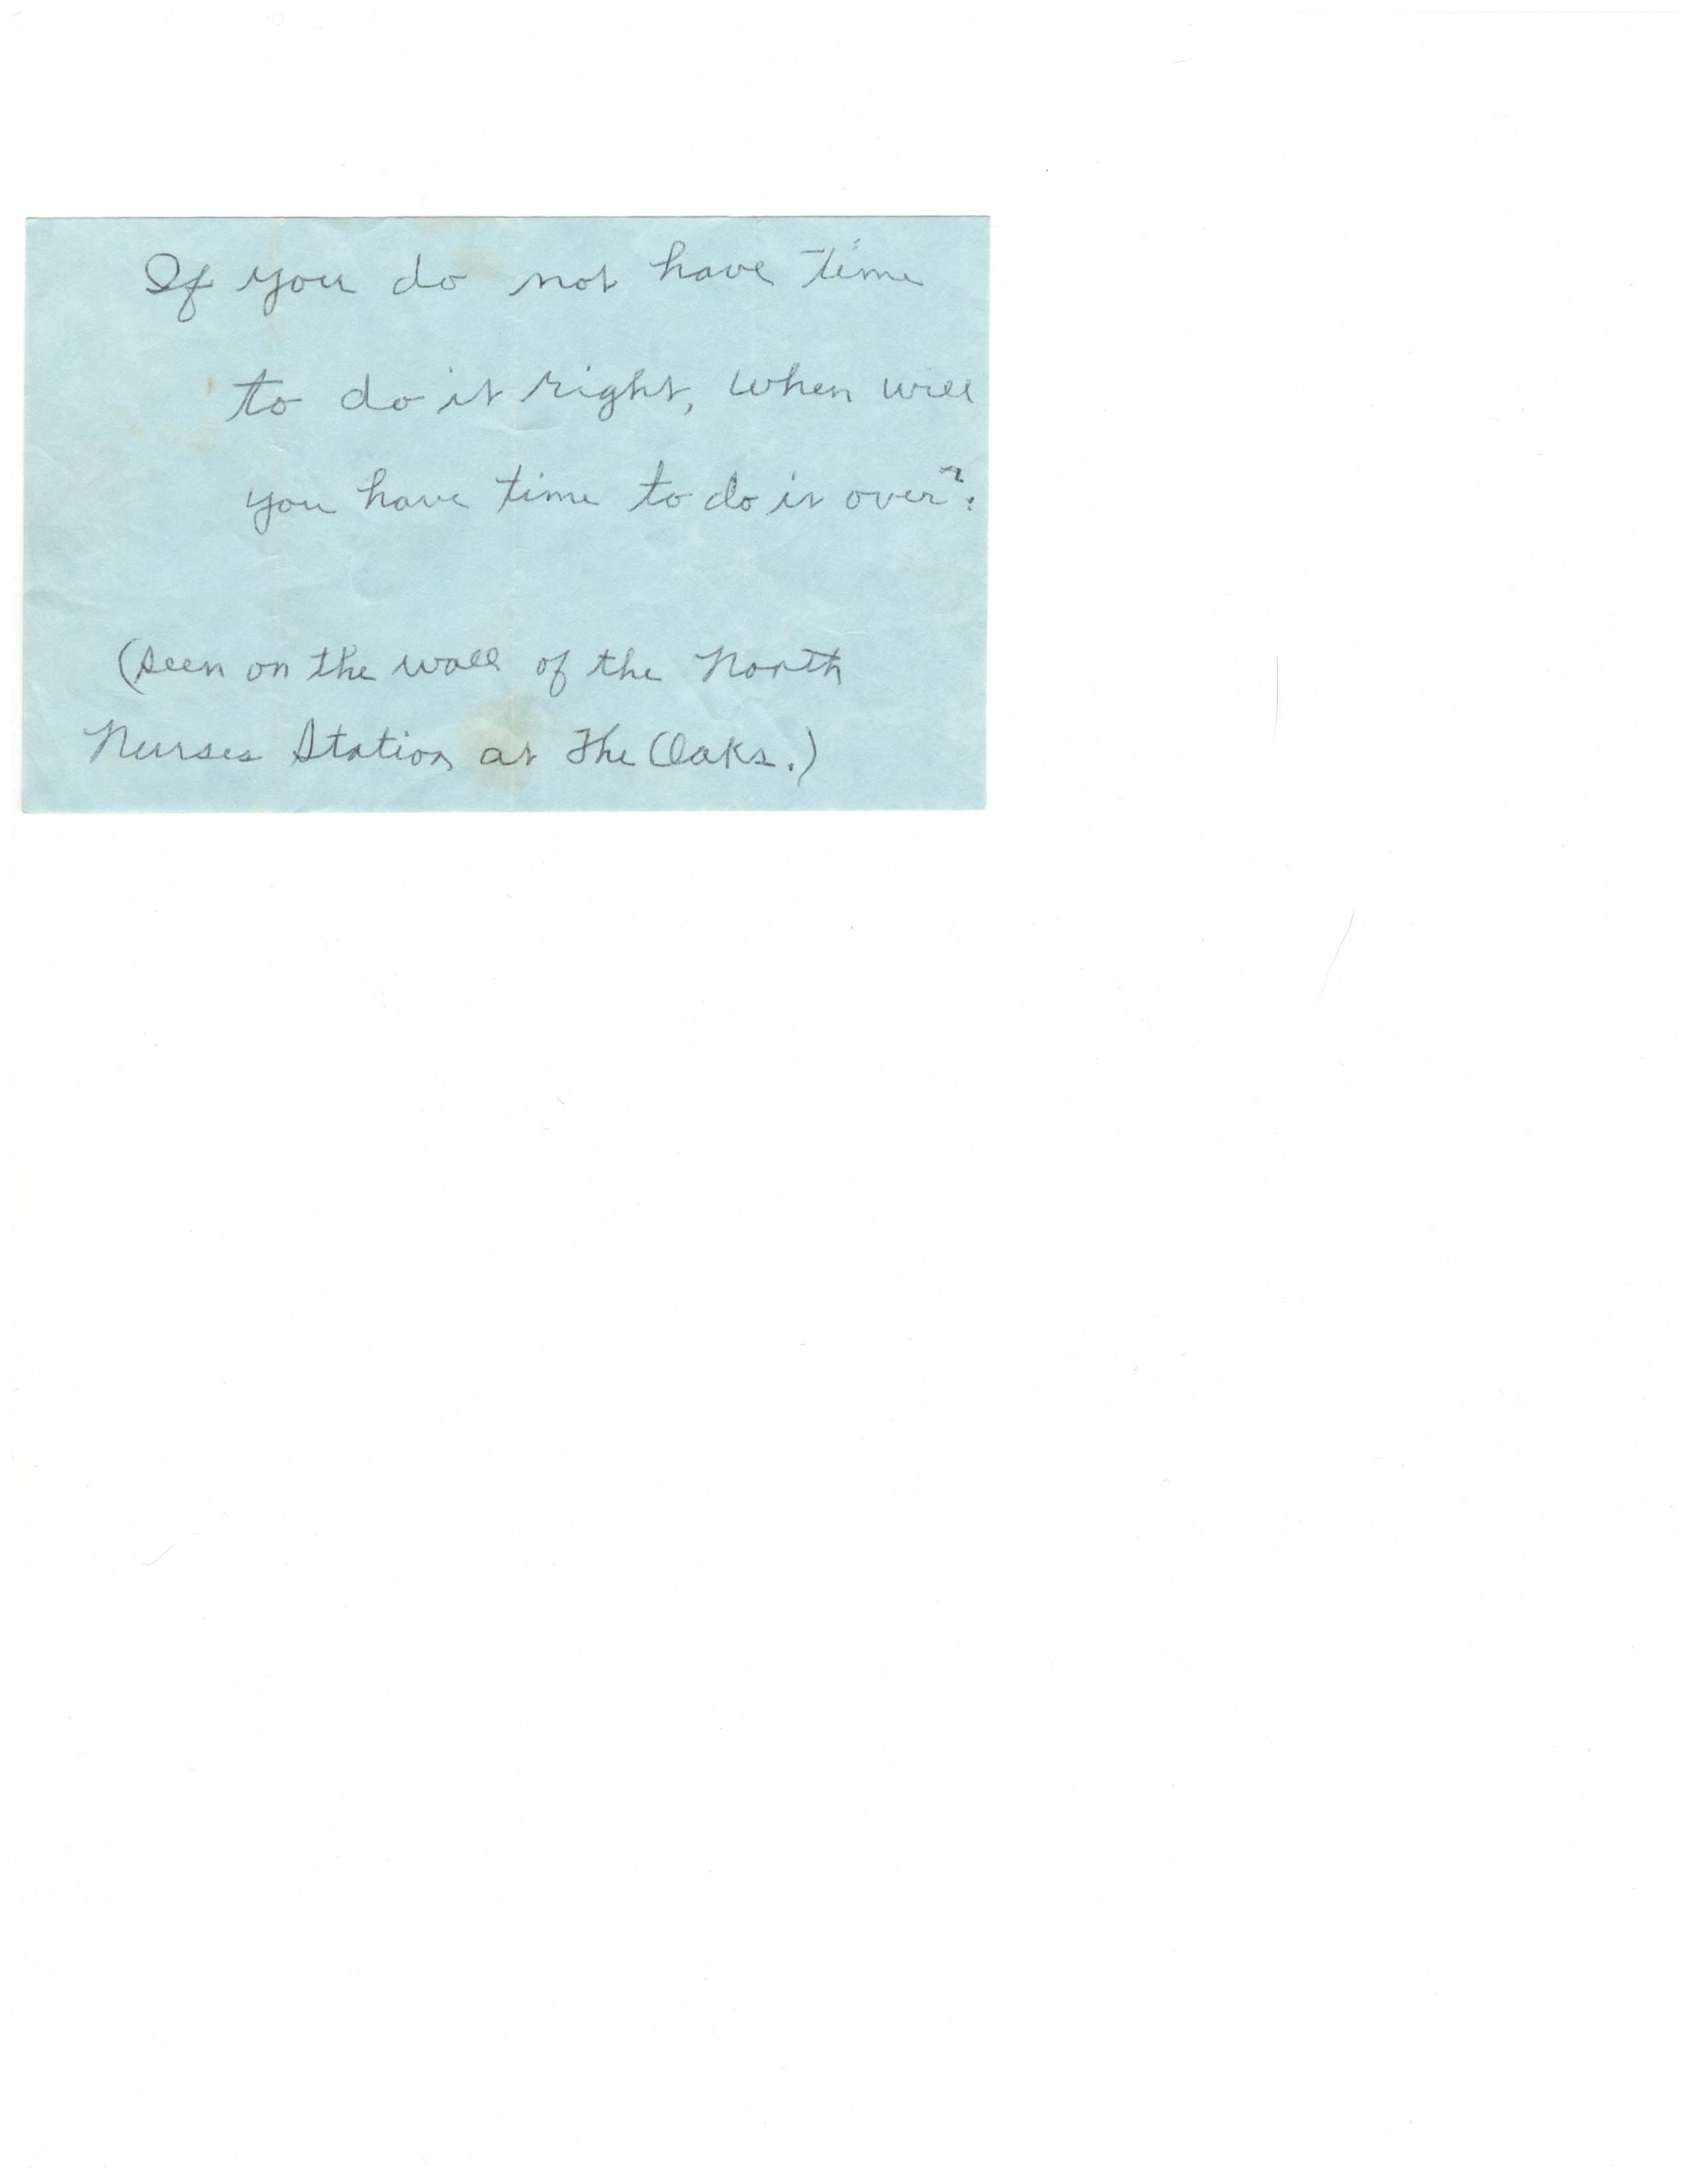 If you do not have time
to do it right, when will
you have time to do it over?
(seen on the wall of the North
Nurses Station at The Oaks.)